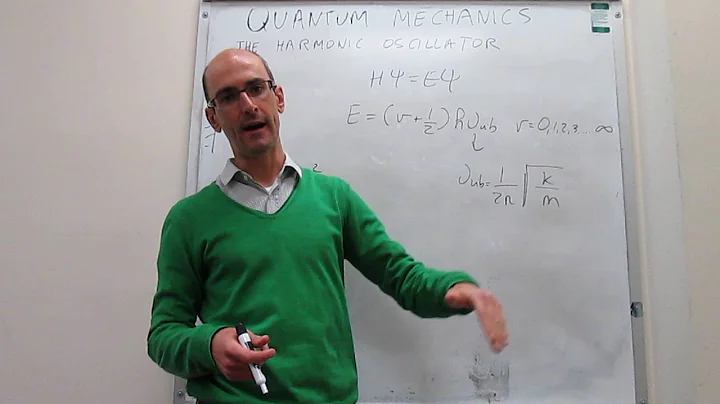 QUANTUM MECHANICS
THE HARMONIC OSCILLATOR
HΨ = EΨ
E = (v + 1/2) hνub v = 0, 1, 2, 3, ... ∞
νub = 1/2π √k/m
2